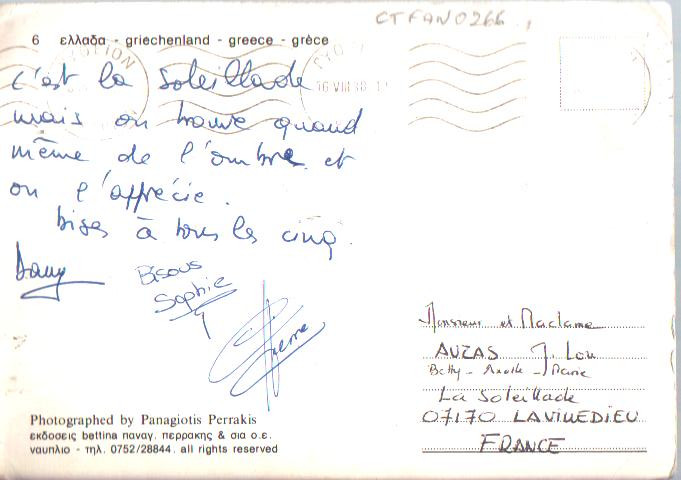 CTFAN0266
6 ελλαδα - griechenland - greece - grèce
16 VIII 88
c'est la soleillade
mais on trouve quand
même de l'ombre et
on l'apprécie.
bises à tous les cinq.
Dany
Bisous
Sophie
Pierre
Monsieur et Madame
AUZAS J. Lou
Betty - - Marie
La Soleillade
07170 LAVILLEDIEU
FRANCE
Photographed by Panagiotis Perrakis
εκδοσεις bettina παναγ. περρακης & σια ο.ε.
ναυπλιο - τηλ. 0752/28844. all rights reserved